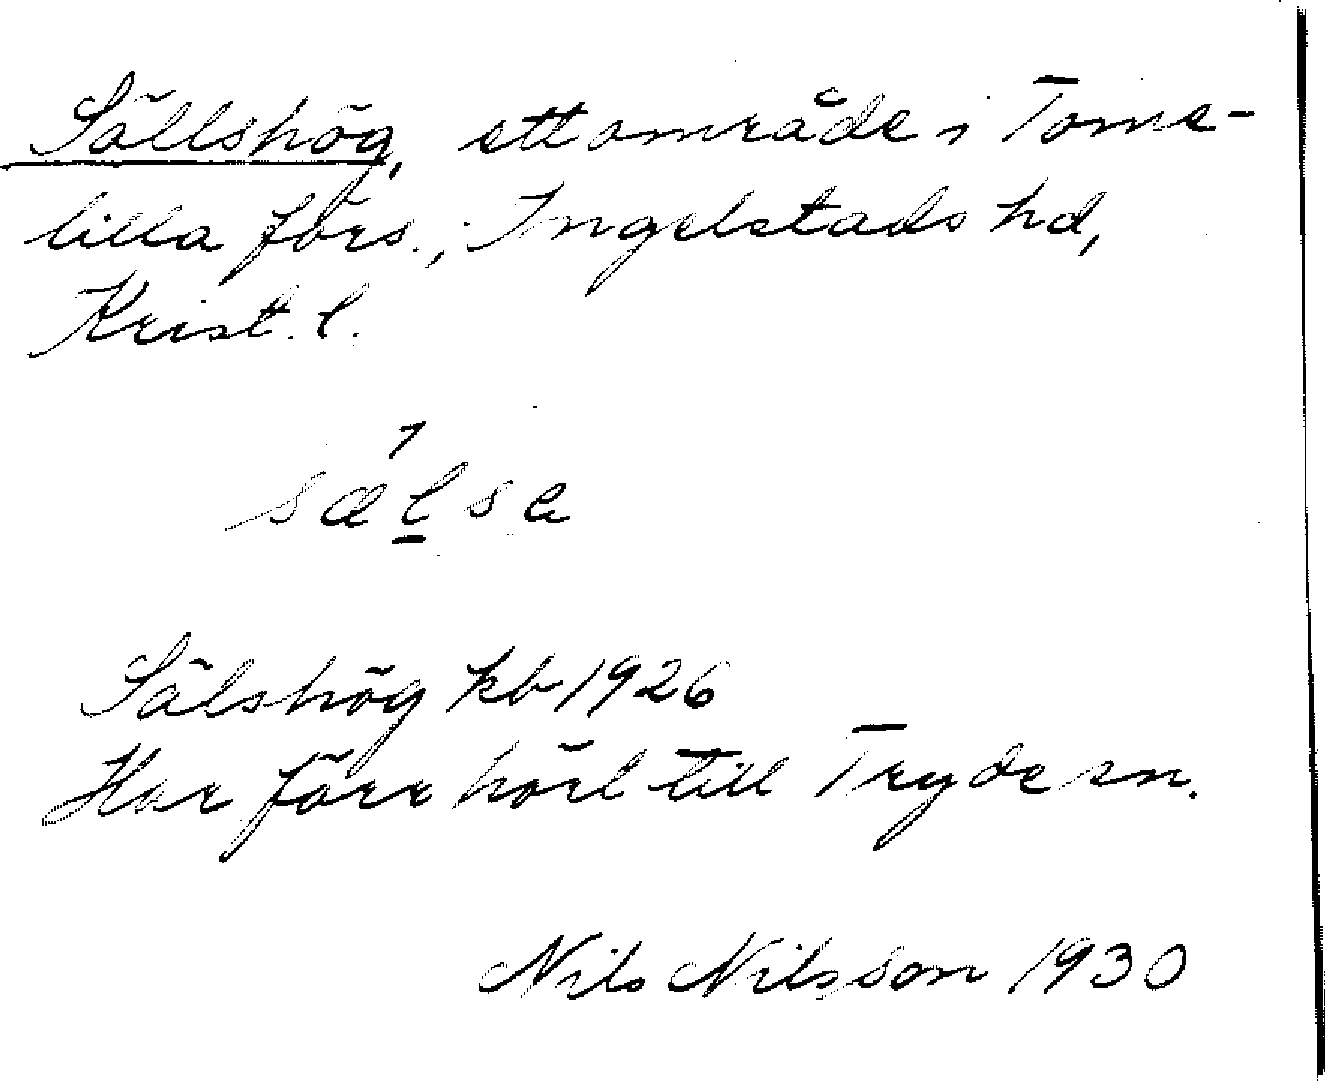 Sällshög, ett område i Tome-
lilla förs., Ingelstads hd,
Krist. l.
sælsa
Sälshög kb 1926
Har förr hört till Tryde sn.
Nils Nilsson 1930